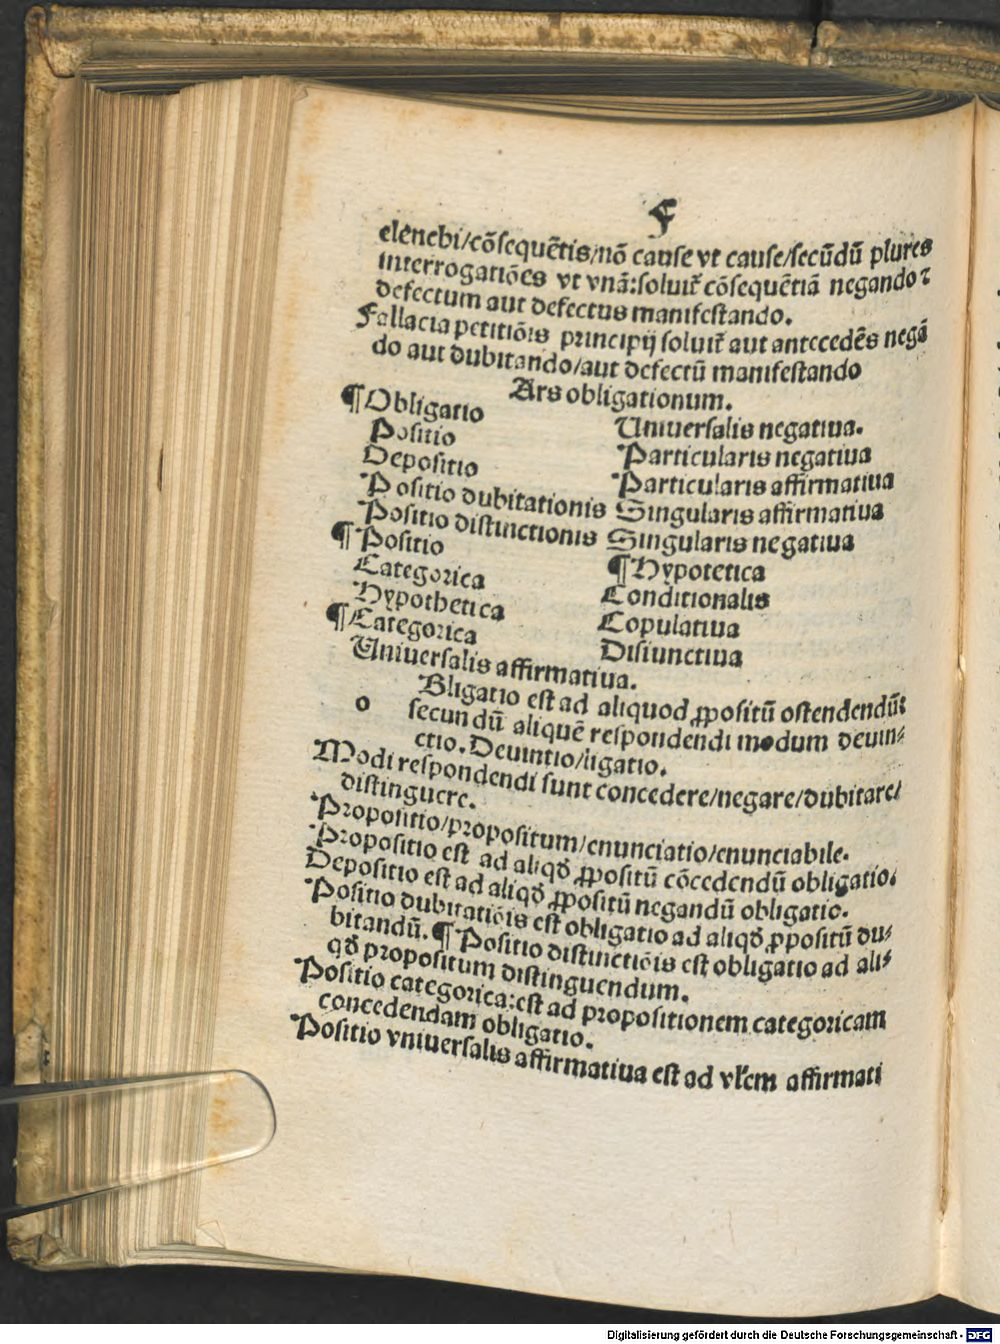 F
elēnchi/cōsequētis/nō cause vt cause/secūdū plures
interrogatiōes vt vnā:soluit̄ cōsequētiā negando⁊
defectum aut defectus manifestando.
Fallacia petitiōis principij soluit̄ aut antecedēs negā
do aut dubitando/aut defectū manifestando
Ars obligationum.
¶Obligatio
Positio
Depositio
Positio dubitationis
Positio distinctionis
¶Positio
Categorica
Hypothetica
¶Categorica
Uniuersalis affirmatiua.
Uniuersalis negatiua.
Particularis negatiua
Particularis affirmatiua
Singularis affirmatiua
Singularis negatiua
¶Hypotetica
Conditionalis
Copulatiua
Disiunctiua
o Bligatio est ad aliquod ꝓpositū ostendendū:
secundū aliquē respondendi modum deuin⸗
ctio. Deuintio/ligatio.
Modi respondendi sunt concedere/negare/dubitare/
distinguere.
Propositio/propositum/enunciatio/enunciabile.
Propositio est ad aliqd̄ ꝓpositū cōcedendū obligatio.
Depositio est ad aliqd̄ ꝓpositū negandū obligatio.
Positio dubitatiōis est obligatio ad aliqd̄ ꝓpositū du⸗
bitandū. ¶Positio distinctiōis est obligatio ad ali⸗
qd̄ propositum distinguendum.
Positio categorica:est ad propositionem categoricam
concedendam obligatio.
Positio vniuersalis affirmatiua est ad vl̄em affirmati
Digitalisierung gefördert durch die Deutsche Forschungsgemeinschaft - DFG